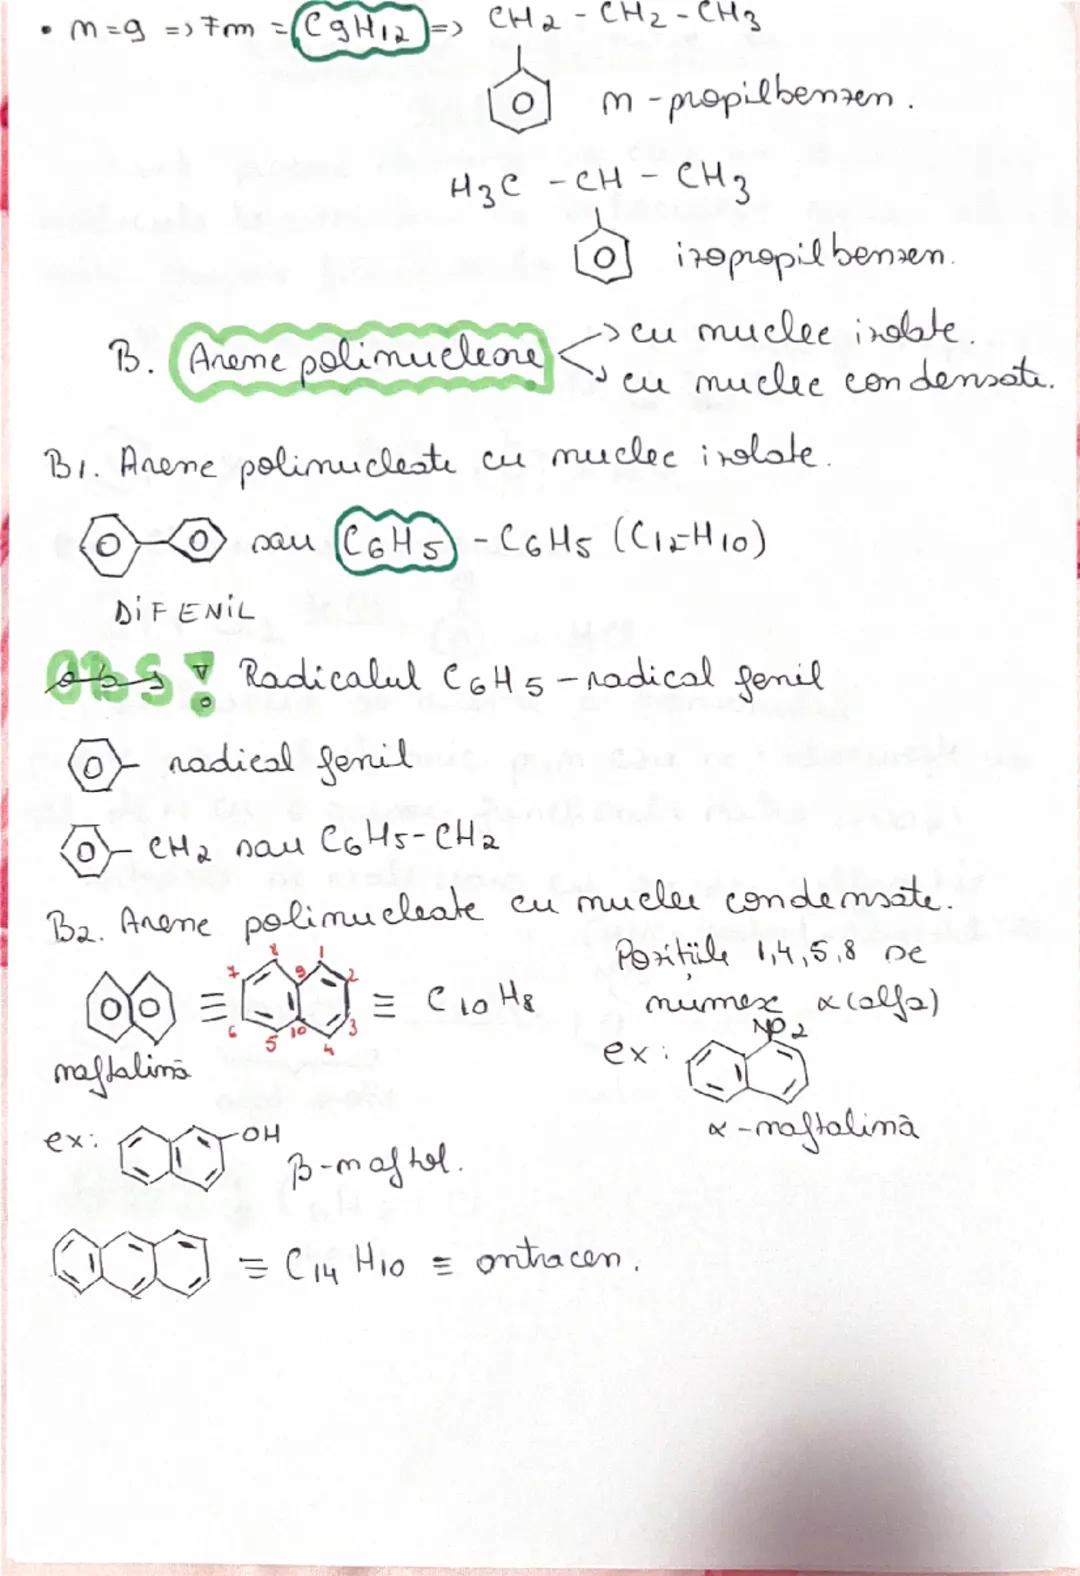 • n=9 => Fm = C9H12 => CH2 - CH2 - CH3
n-propilbenzen.
H3C - CH - CH3
izopropilbenzen.
B. Arene polinucleare -> cu nuclee izolate.
-> cu nuclee condensate.
B1. Arene polinucleate cu nuclee izolate.
sau C6H5 - C6H5 (C12H10)
DIFENIL
Obs! Radicalul C6H5 - radical fenil
radical fenil
- CH2 sau C6H5-CH2
B2. Arene polinucleate cu nuclee condensate.
Pozițiile 1,4,5,8 se
numesc α(alfa)
≡ 1 2 3 4 5 6 7 8 9 10 ≡ C10H8
naftalină
ex: NO2
α-naftalină
ex: -OH
β-naftol.
≡ C14H10 ≡ antracen.